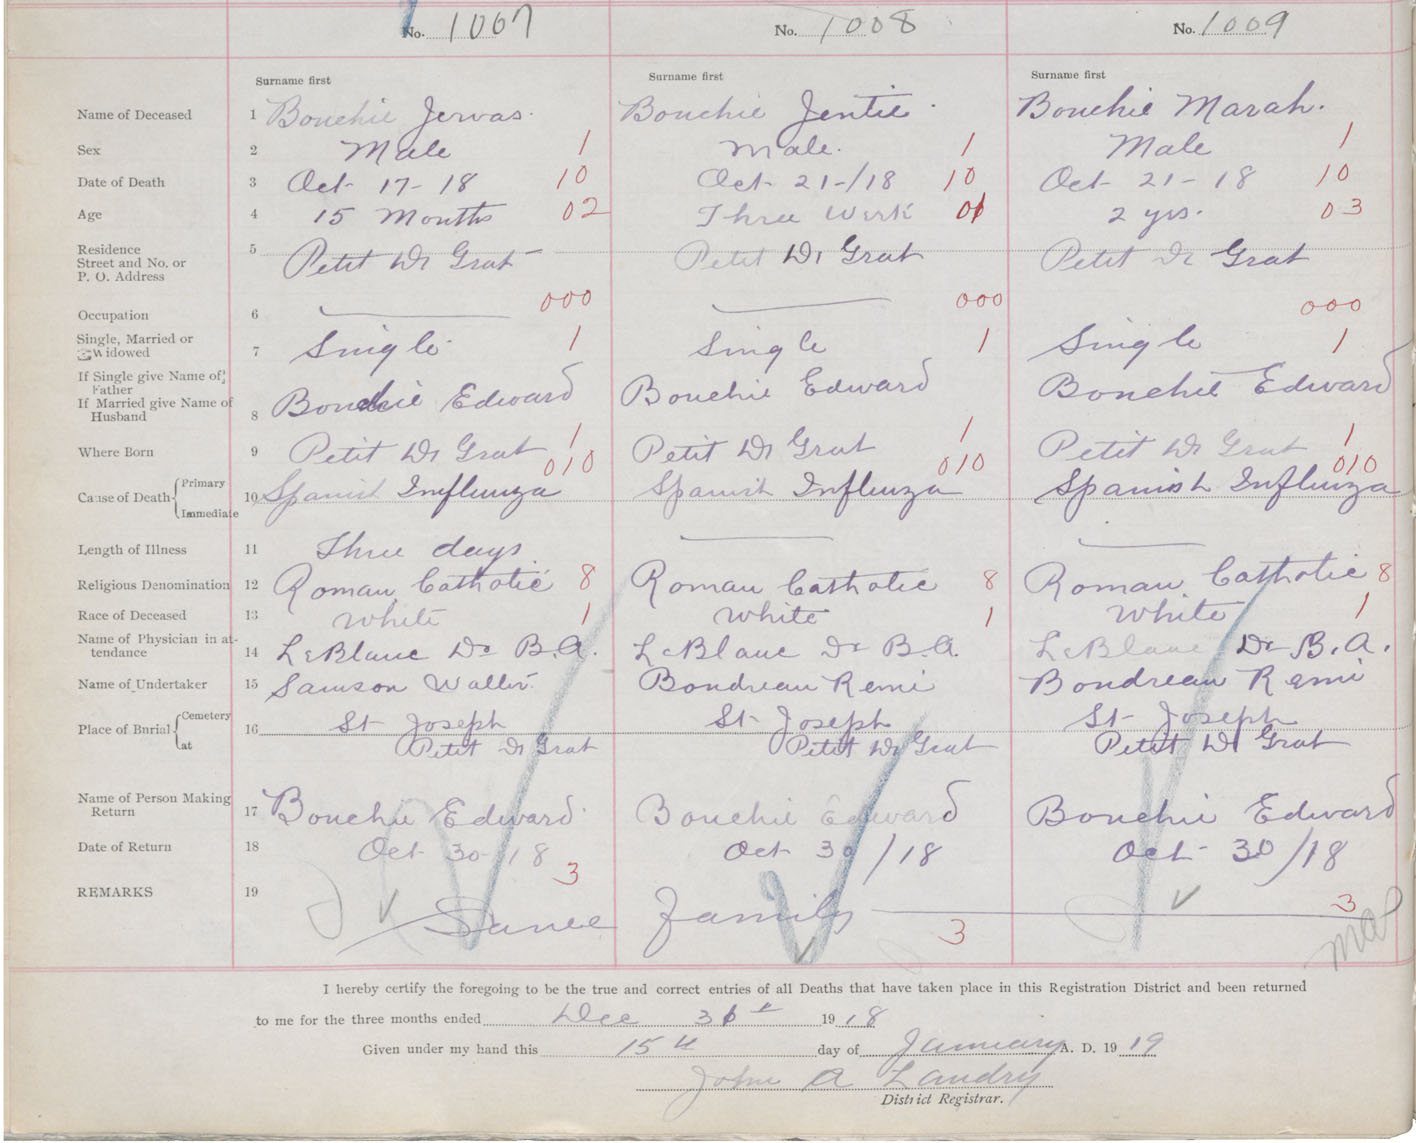 No. 1007 No. 1008 No. 1009
Surname first Surname first Surname first
Name of Deceased 1 Bouchie Jervas. Bouchie Jentie. Bouchie Marah.
Sex 2 Male 1 Male. 1 Male 1
Date of Death 3 Oct- 17-18 10 Oct- 21-/18 10 Oct- 21-18 10
Age 4 15 Months 02 Three Week 01 2 yrs. 03
Residence
Street and No. or 5 Petit Dr Grat Petit Dr Grat Petit Dr Grat
P. O. Address
000 000 000
Occupation 6
Single, Married or
Widowed 7 Single 1 Single 1 Single 1
If Single give Name of
Father
If Married give Name of
Husband 8 Bouchie Edward Bouchie Edward Bouchie Edward
Where Born 9 Petit Dr Grat 1 Petit Dr Grat 1 Petit Dr Grat 1
010 010 010
Cause of Death Primary
10 Spanish Influnza Spanish Influnza Spanish Influnza
Immediate
Length of Illness 11 Three days
Religious Denomination 12 Roman Catholic 8 Roman Catholic 8 Roman Catholic 8
Race of Deceased 13 White 1 White 1 White 1
Name of Physician in at-
tendance 14 LeBlanc Dr B.A. LeBlanc Dr B.A. LeBlanc Dr B.A.
Name of Undertaker 15 Samson Walter Boudreau Remi Boudreau Remi
Place of Burial Cemetery 16 St Joseph St- Joseph St- Joseph
at Petit Dr Grat Petit Dr Grat Petit Dr Grat
Name of Person Making
Return 17 Bouchie Edward Bouchie Edward Bouchie Edward
Date of Return 18 Oct 30-18 Oct- 30/18 Oct- 30/18
3
REMARKS 19 3
Same Family 3
I hereby certify the foregoing to be the true and correct entries of all Deaths that have taken place in this Registration District and been returned
to me for the three months ended Dec 31st 1918
Given under my hand this 15th day of January A. D. 1919
John A Landry
District Registrar.